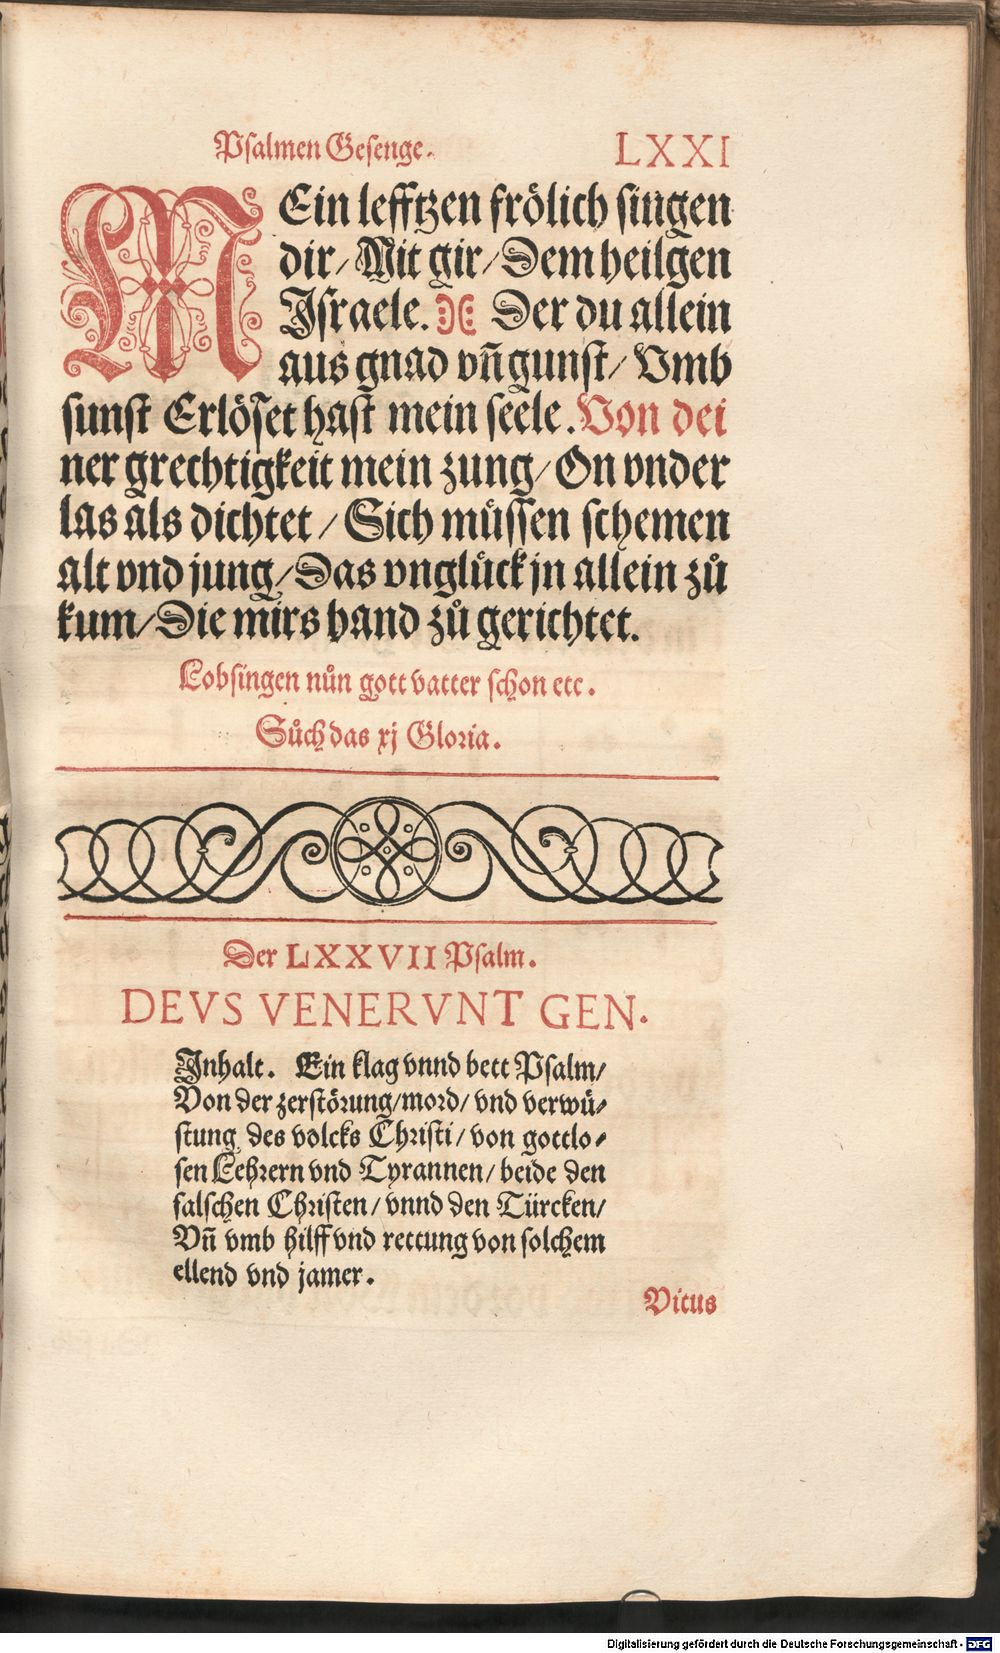 Psalmen Gesenge. LXXI
MEin lefftzen frölich singen
dir/ Mit gir/ Dem heilgen
Israele. Der du allein
aus gnad vñ gunst/ Vmb
sunst Erlöset hast mein seele. Von dei
ner grechtigkeit mein zung/ On vnder
las als dichtet/ Sich müssen schemen
alt vnd jung/ Das vnglück jn allein zů
kum/ Die mirs hand zů gerichtet.
Lobsingen nůn gott vatter schon etc.
Sůch das xj Gloria.
Der LXXVII Psalm.
DEVS VENERVNT GEN.
Inhalt. Ein klag vnnd bett Psalm/
Von der zerstörung/ mord/ vnd verwü⸗
stung des volcks Christi/ von gottlo⸗
sen Lehrern vnd Tyrannen/ beide den
falschen Christen/ vnnd den Türcken/
Vñ vmb hilff vnd rettung von solchem
ellend vnd jamer.
Vitus
Digitalisierung gefördert durch die Deutsche Forschungsgemeinschaft - DFG